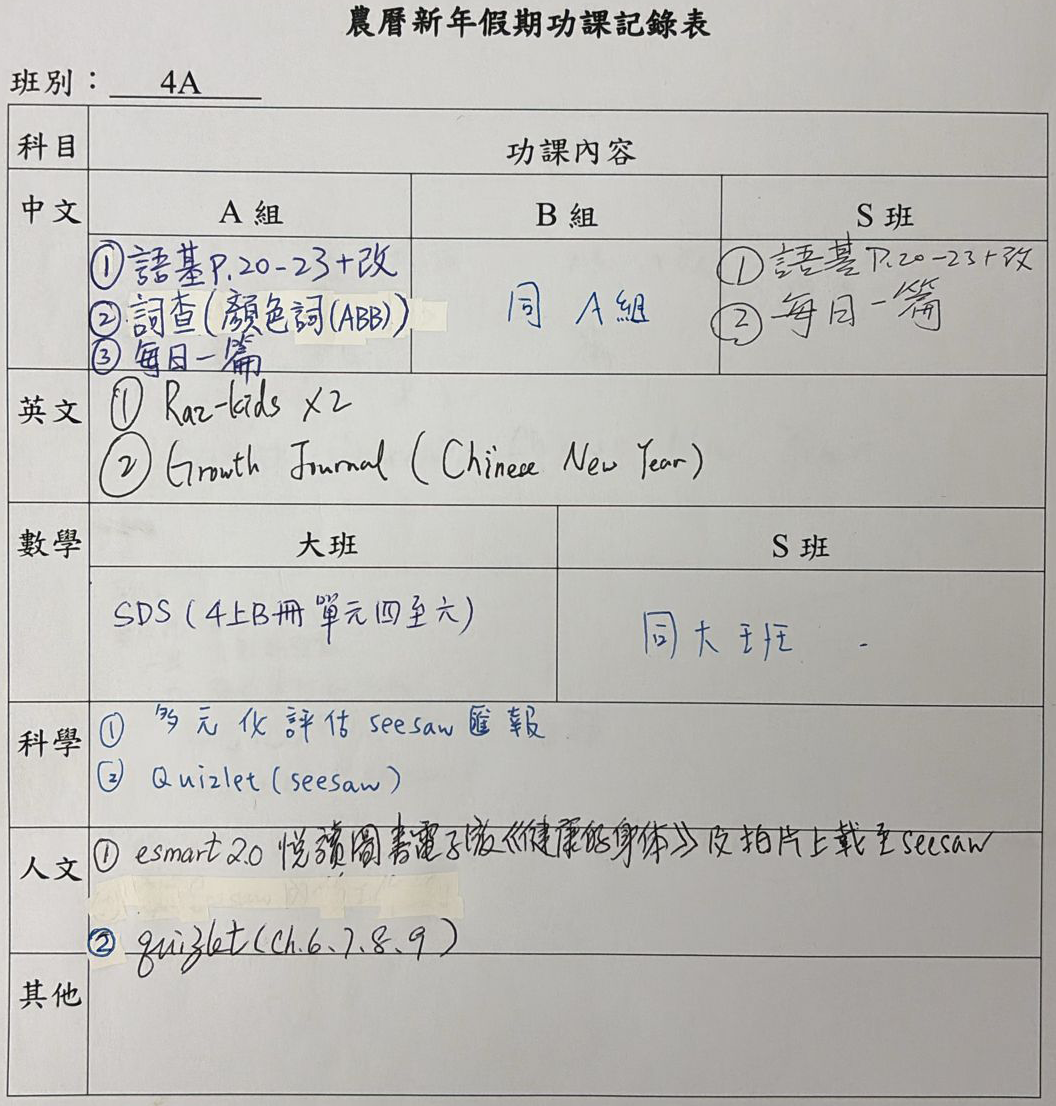 農曆新年假期功課記錄表
班別： 4A
科目 功課內容
中文 A 組 B 組 S 班
①語基P.20-23+改
②詞查(顏色詞(ABB))
③每日一篇
同 A組
①語基P.20-23+改
②每日一篇
英文
① Raz-kids x2
② Growth Journal (Chinese New Year)
數學 大班 S 班
SDS (4上B冊單元四至六)
同大班
科學
① 多元化評估 seesaw 匯報
② Quizlet (seesaw)
人文
① esmart 2.0 悅讀圖書電子版《健康的身体》及拍片上載至seesaw
② quizlet (ch.6、7、8、9)
其他